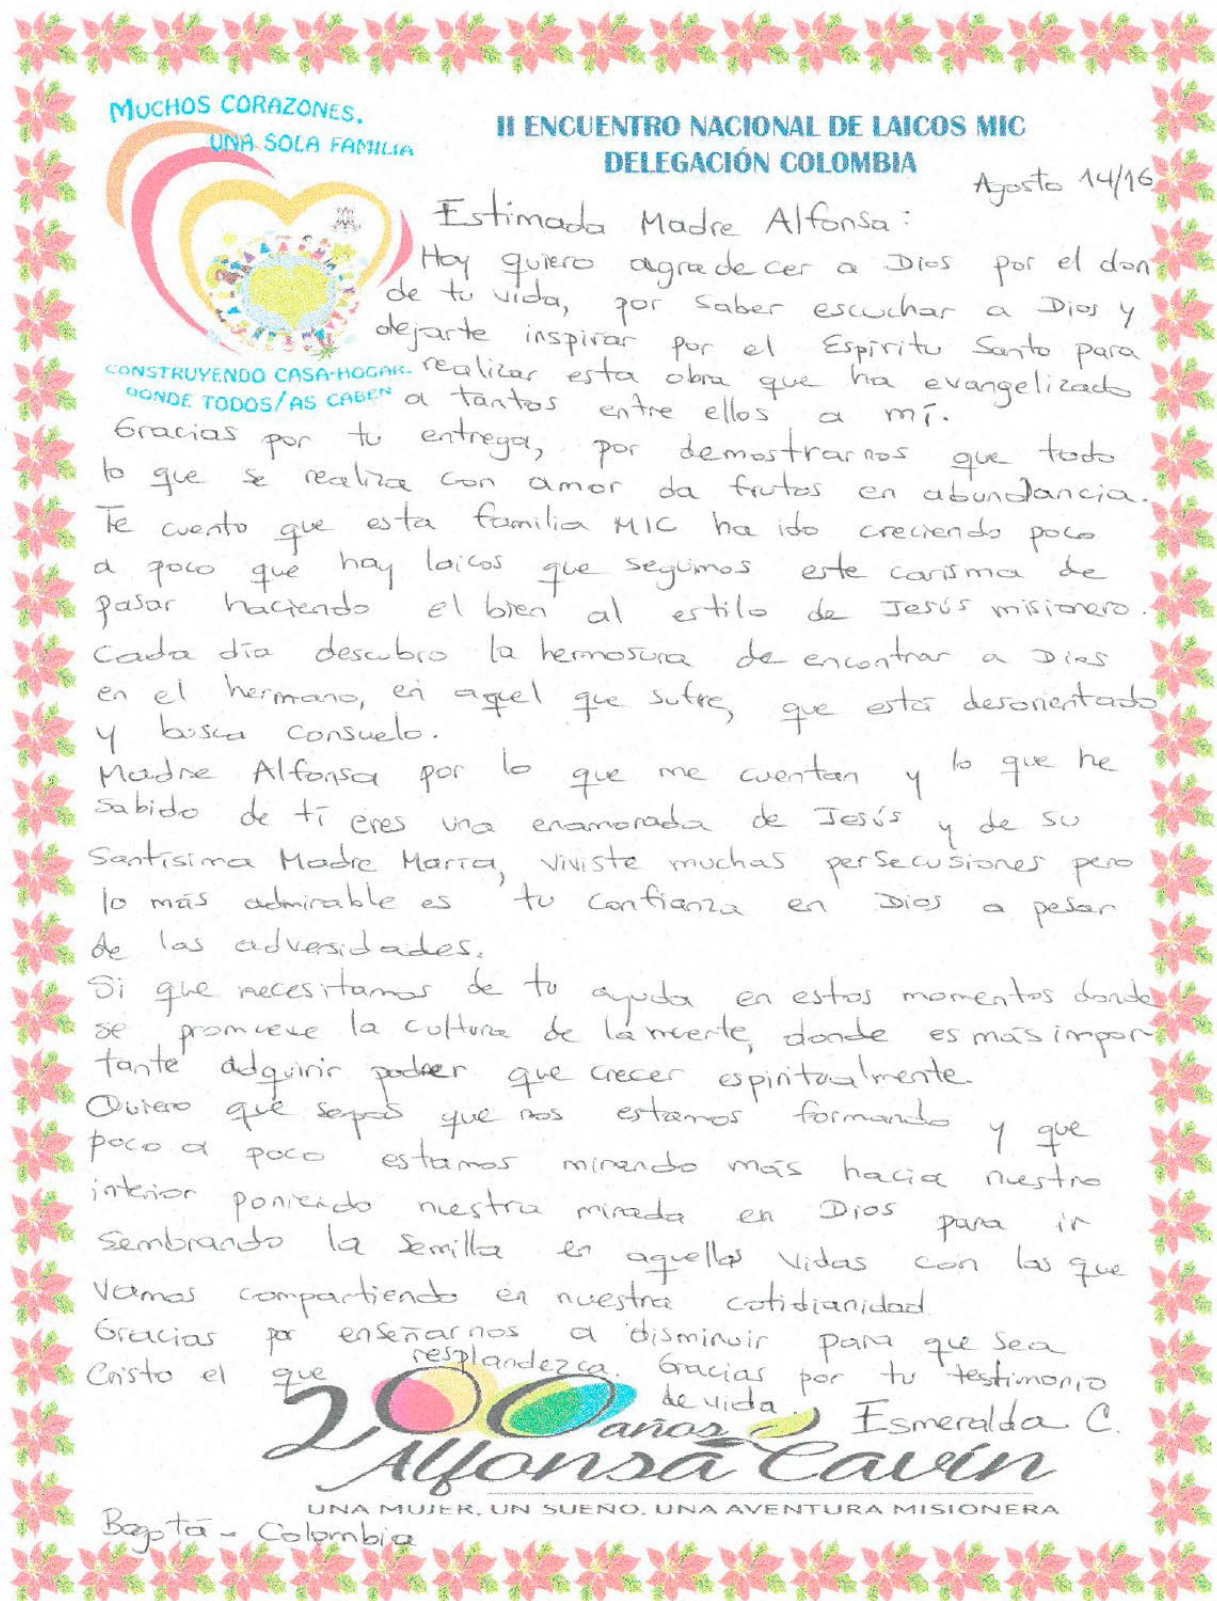 MUCHOS CORAZONES,
UNA SOLA FAMILIA
CONSTRUYENDO CASA-HOGAR
DONDE TODOS/AS CABEN
II ENCUENTRO NACIONAL DE LAICOS MIC
DELEGACIÓN COLOMBIA
Agosto 14/16
Estimada Madre Alfonsa:
Hoy quiero agradecer a Dios por el don
de tu vida, por saber escuchar a Dios y
dejarte inspirar por el Espíritu Santo para
realizar esta obra que ha evangelizado
a tantos entre ellos a mí.
Gracias por tu entrega, por demostrarnos que todo
lo que se realiza con amor da frutos en abundancia.
Te cuento que esta familia MIC ha ido creciendo poco
a poco que hay laicos que seguimos este carisma de
pasar haciendo el bien al estilo de Jesús misionero.
Cada día descubro la hermosura de encontrar a Dios
en el hermano, en aquel que sufre, que está desorientado
y busca consuelo.
Madre Alfonsa por lo que me cuentan y lo que he
sabido de tí eres una enamorada de Jesús y de su
Santísima Madre María, viviste muchas persecusiones pero
lo más admirable es tu confianza en Dios a pesar
de las adversidades.
Si que necesitamos de tu ayuda en estos momentos donde
se promueve la cultura de la muerte, donde es más impor-
tante adquirir poder que crecer espiritualmente.
Quiero que sepas que nos estamos formando y que
poco a poco estamos mirando más hacia nuestro
interior poniendo nuestra mirada en Dios para ir
sembrando la semilla en aquellas vidas con las que
vamos compartiendo en nuestra cotidianidad.
Gracias por enseñarnos a disminuir para que sea
Cristo el que resplandezca. Gracias por tu testimonio
de vida. Esmeralda C.
200 años
Alfonsa Cavín
UNA MUJER, UN SUEÑO, UNA AVENTURA MISIONERA
Bogotá - Colombia